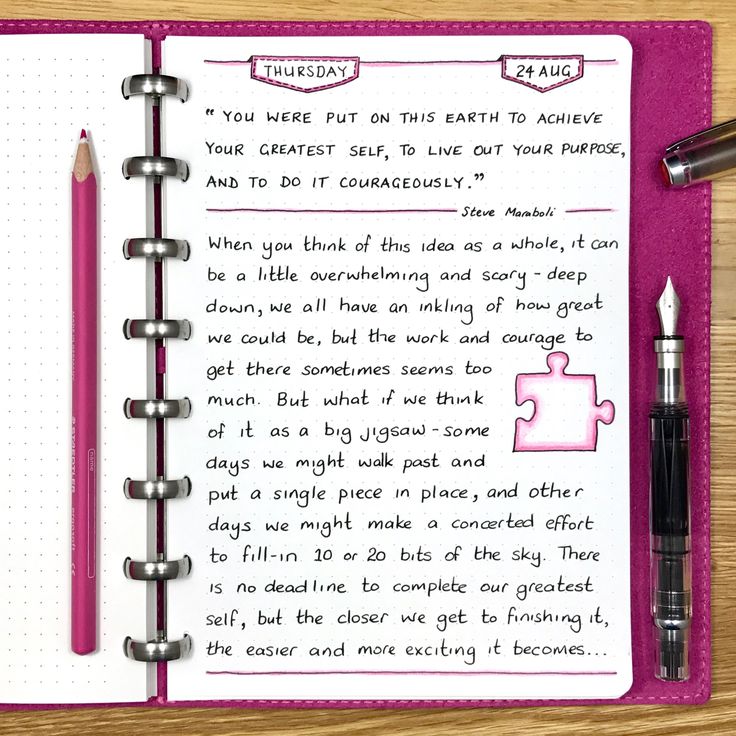 THURSDAY 24 AUG
"YOU WERE PUT ON THIS EARTH TO ACHIEVE
YOUR GREATEST SELF, TO LIVE OUT YOUR PURPOSE,
AND TO DO IT COURAGEOUSLY."
Steve Maraboli
When you think of this idea as a whole, it can
be a little overwhelming and scary - deep
down, we all have an inkling of how great
we could be, but the work and courage to
get there sometimes seems too
much. But what if we think
of it as a big jigsaw - some
days we might walk past and
put a single piece in place, and other
days we might make a concerted effort
to fill-in 10 or 20 bits of the sky. There
is no deadline to complete our greatest
self, but the closer we get to finishing it,
the easier and more exciting it becomes...
STAEDTLER
name
CE